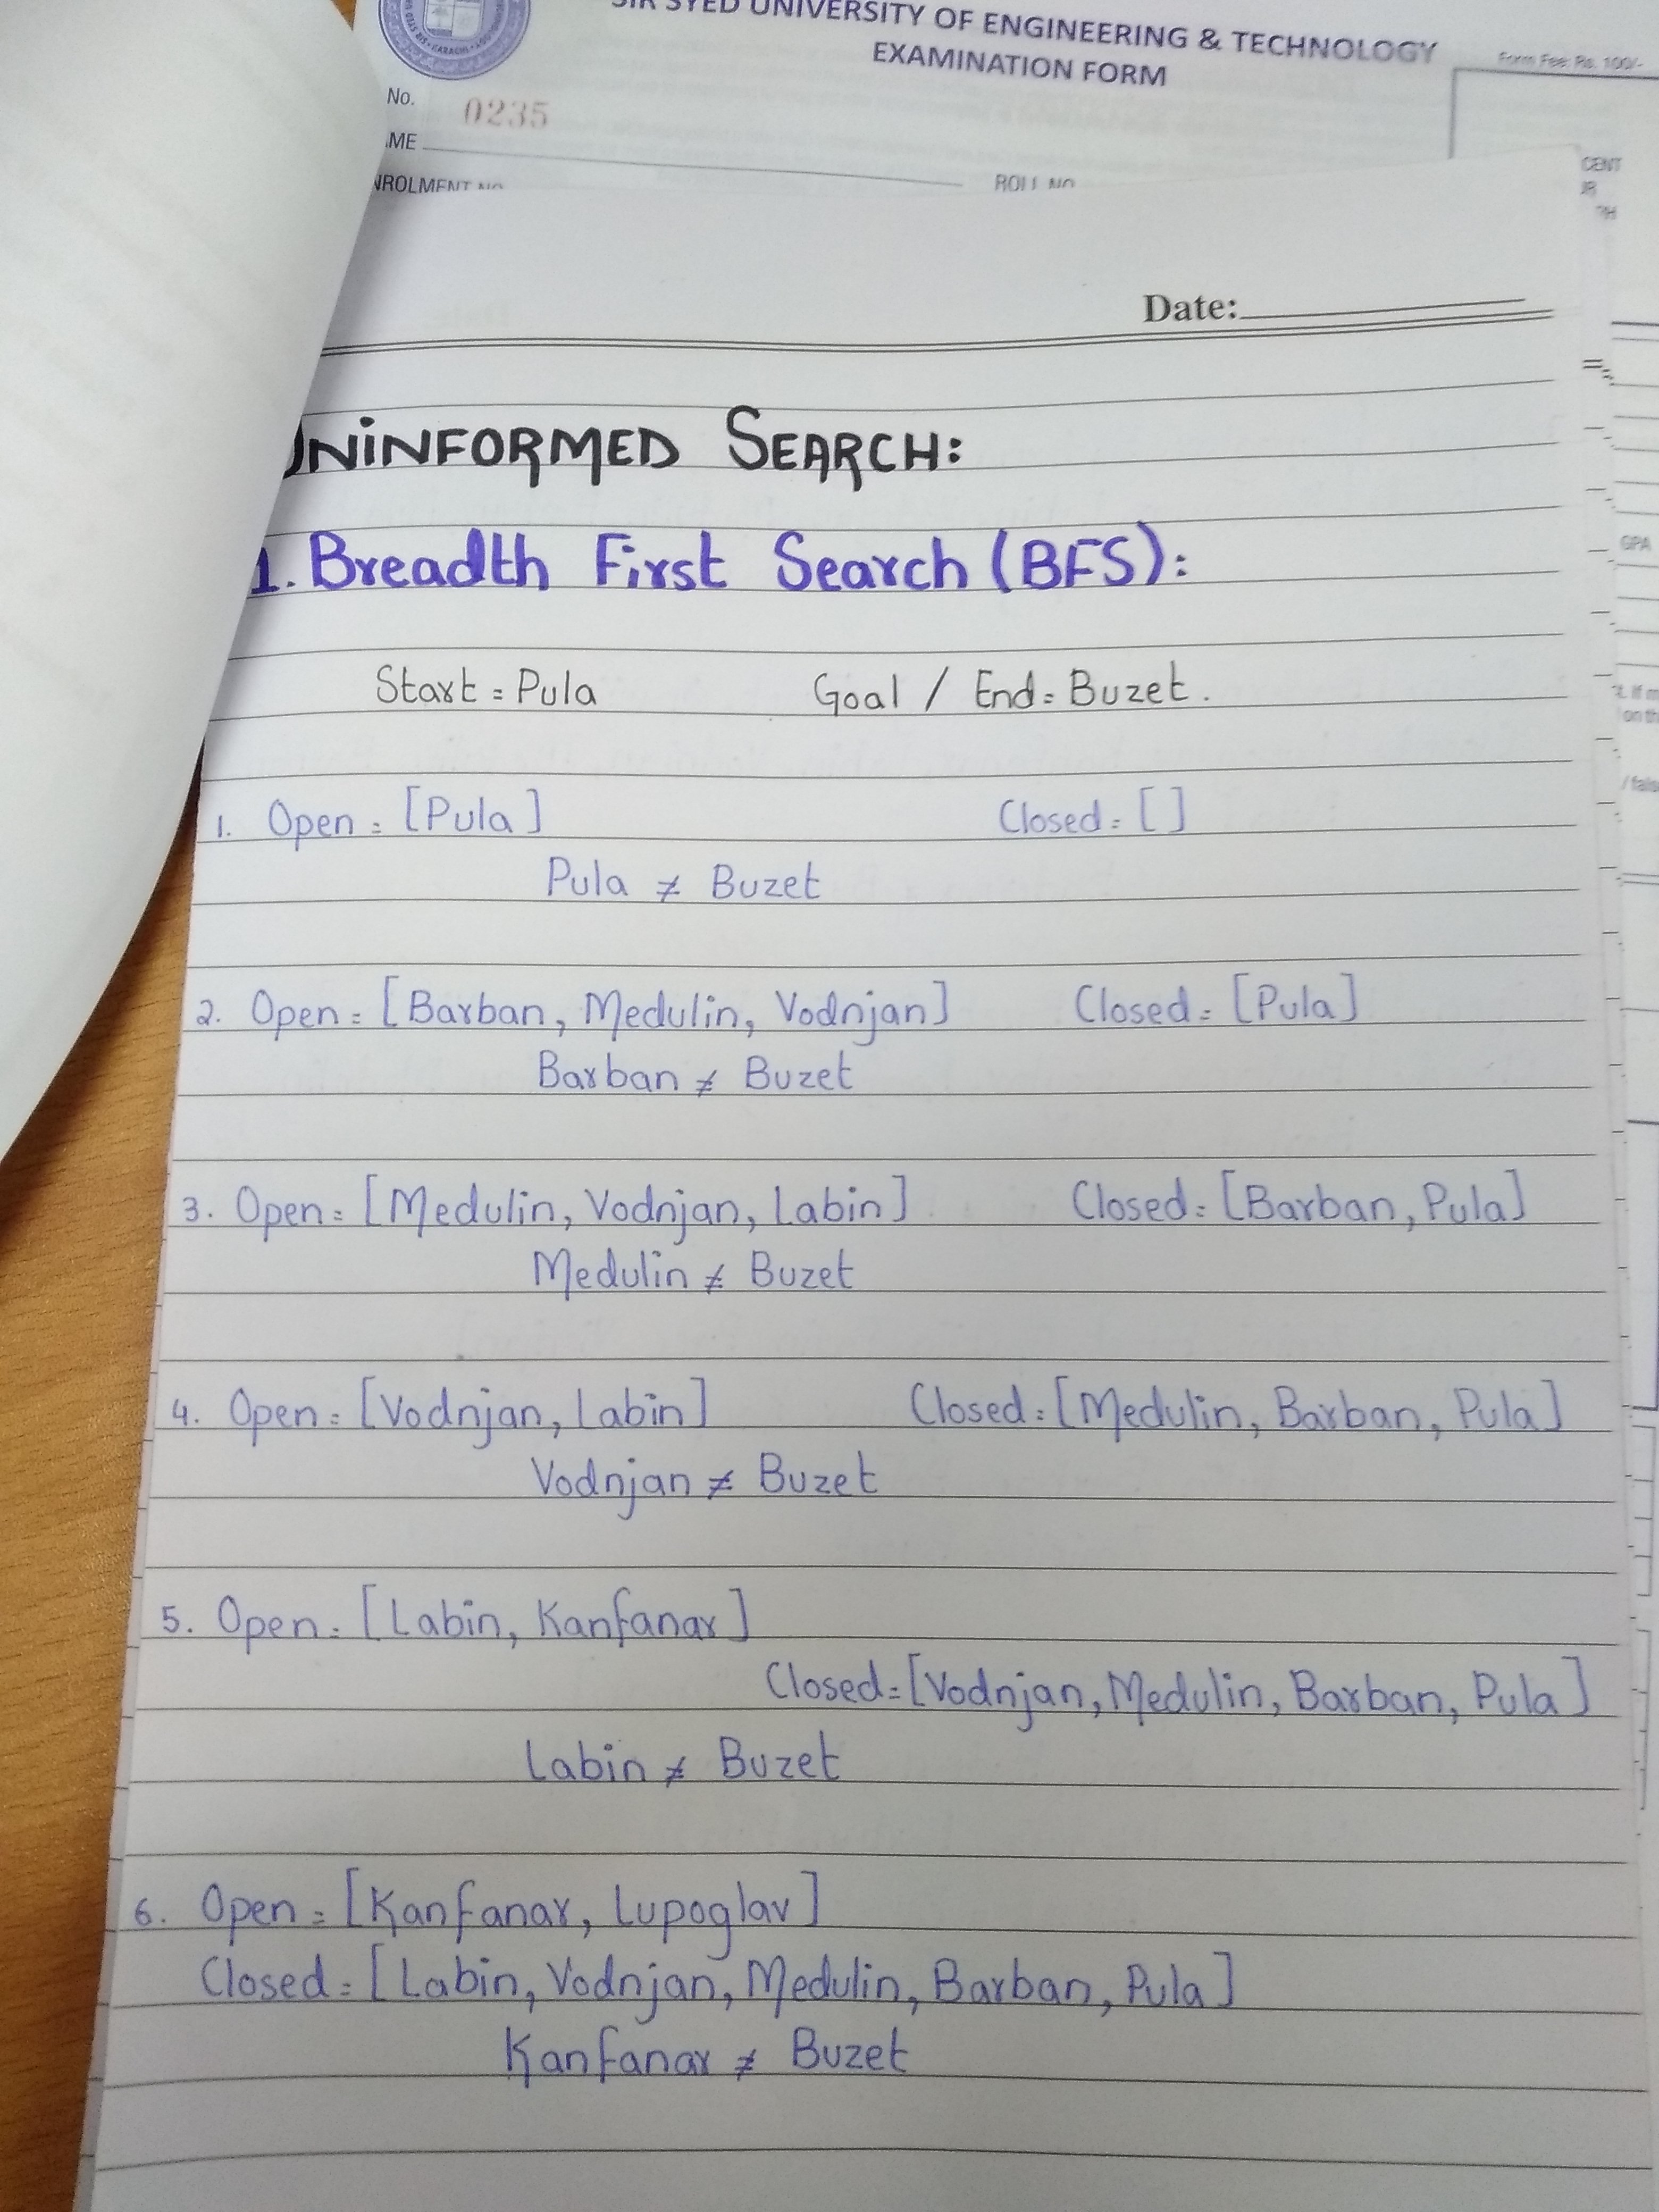 SIR SYED UNIVERSITY OF ENGINEERING & TECHNOLOGY
EXAMINATION FORM
Form Fee: Rs. 100/-
No. 0235
ME
ROLL NO
CENT
GPA
on th
Date:
UNINFORMED SEARCH:
1. Breadth First Search (BFS):
Start = Pula Goal / End = Buzet.
1. Open = [Pula] Closed = [ ]
Pula ≠ Buzet
2. Open = [Barban, Medulin, Vodnjan] Closed = [Pula]
Barban ≠ Buzet
3. Open = [Medulin, Vodnjan, Labin] Closed = [Barban, Pula]
Medulin ≠ Buzet
4. Open = [Vodnjan, Labin] Closed = [Medulin, Barban, Pula]
Vodnjan ≠ Buzet
5. Open = [Labin, Kanfanar]
Closed = [Vodnjan, Medulin, Barban, Pula]
Labin ≠ Buzet
6. Open = [Kanfanar, Lupoglav]
Closed = [Labin, Vodnjan, Medulin, Barban, Pula]
Kanfanar ≠ Buzet